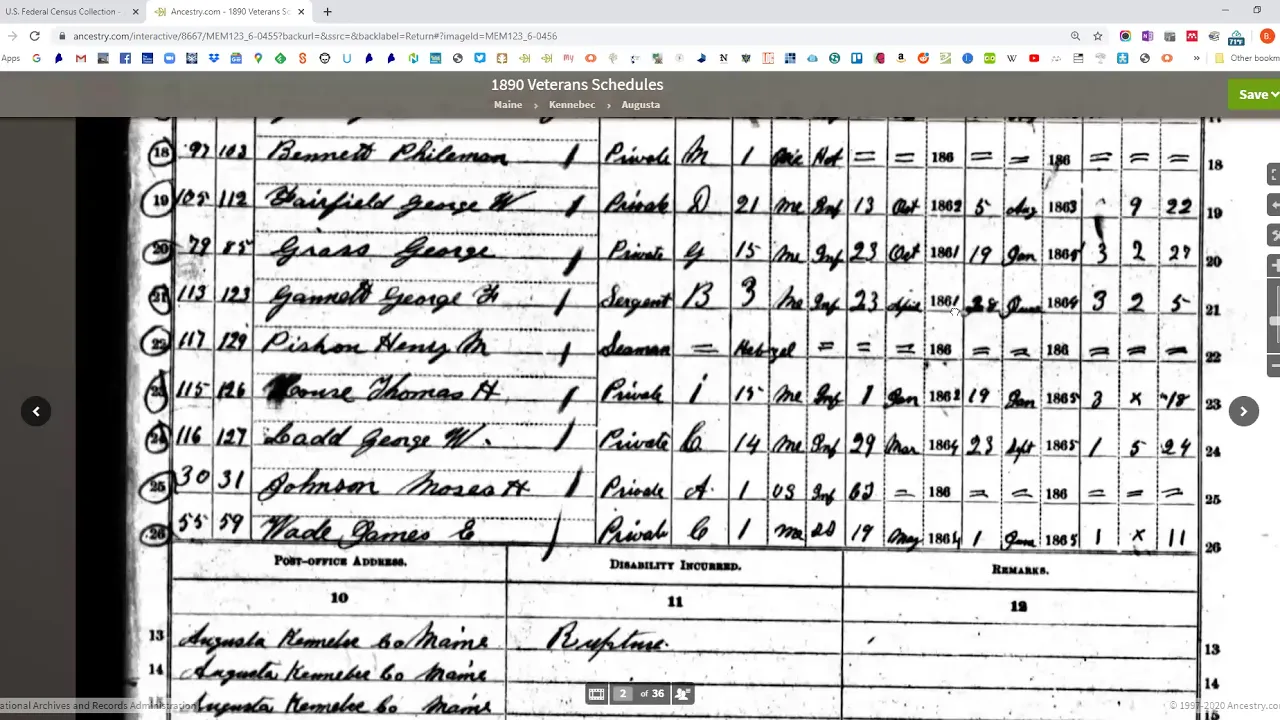 U.S. Federal Census Collection -
Ancestry.com - 1890 Veterans Sc
ancestry.com/interactive/8667/MEM123_6-0455?backurl=&ssrc=&backlabel=Return#?imageId=MEM123_6-0456
Apps
Other bookm
1890 Veterans Schedules
Maine > Kennebec > Augusta
Save
18 97 103 Bennett Phileman 1 Private M 1 Hot = = 186 = = 186 = = = 18
19 105 112 Fairfield George W 1 Private D 21 Me Inf 13 Oct 1862 5 Aug 1863 9 22 19
20 79 85 Grass George 1 Private G 15 Me Inf 23 Oct 1861 19 Jan 1865 3 2 27 20
21 113 123 Gannett George F 1 Sergent B 3 Me Inf 23 1861 28 June 1864 3 2 5 21
22 117 129 Pishon Henry M 1 Seaman = = = = 186 = = 186 = = = 22
23 115 126 Thomas H 1 Private i 15 Me Inf 1 Jan 1862 19 Jan 1865 3 x 18 23
24 116 127 Ladd George W. 1 Private C 14 Me Inf 29 Mar 1864 23 Sept 1865 1 5 24 24
25 30 31 Johnson Moses H 1 Private A. 1 US Inf = 186 = = 186 = = = 25
26 55 59 Wade James E 1 Private C 1 Me SS 19 May 1864 1 June 1865 1 x 11 26
POST-OFFICE ADDRESS. DISABILITY INCURRED. REMARKS.
10 11 12
13 Augusta Kennebec Co Maine Rupture. 13
14 Augusta Kennebec Co Maine 14
Augusta Kennebec Co Maine
2 of 36
ational Archives and Records Administration
© 1997-2020 Ancestry.co